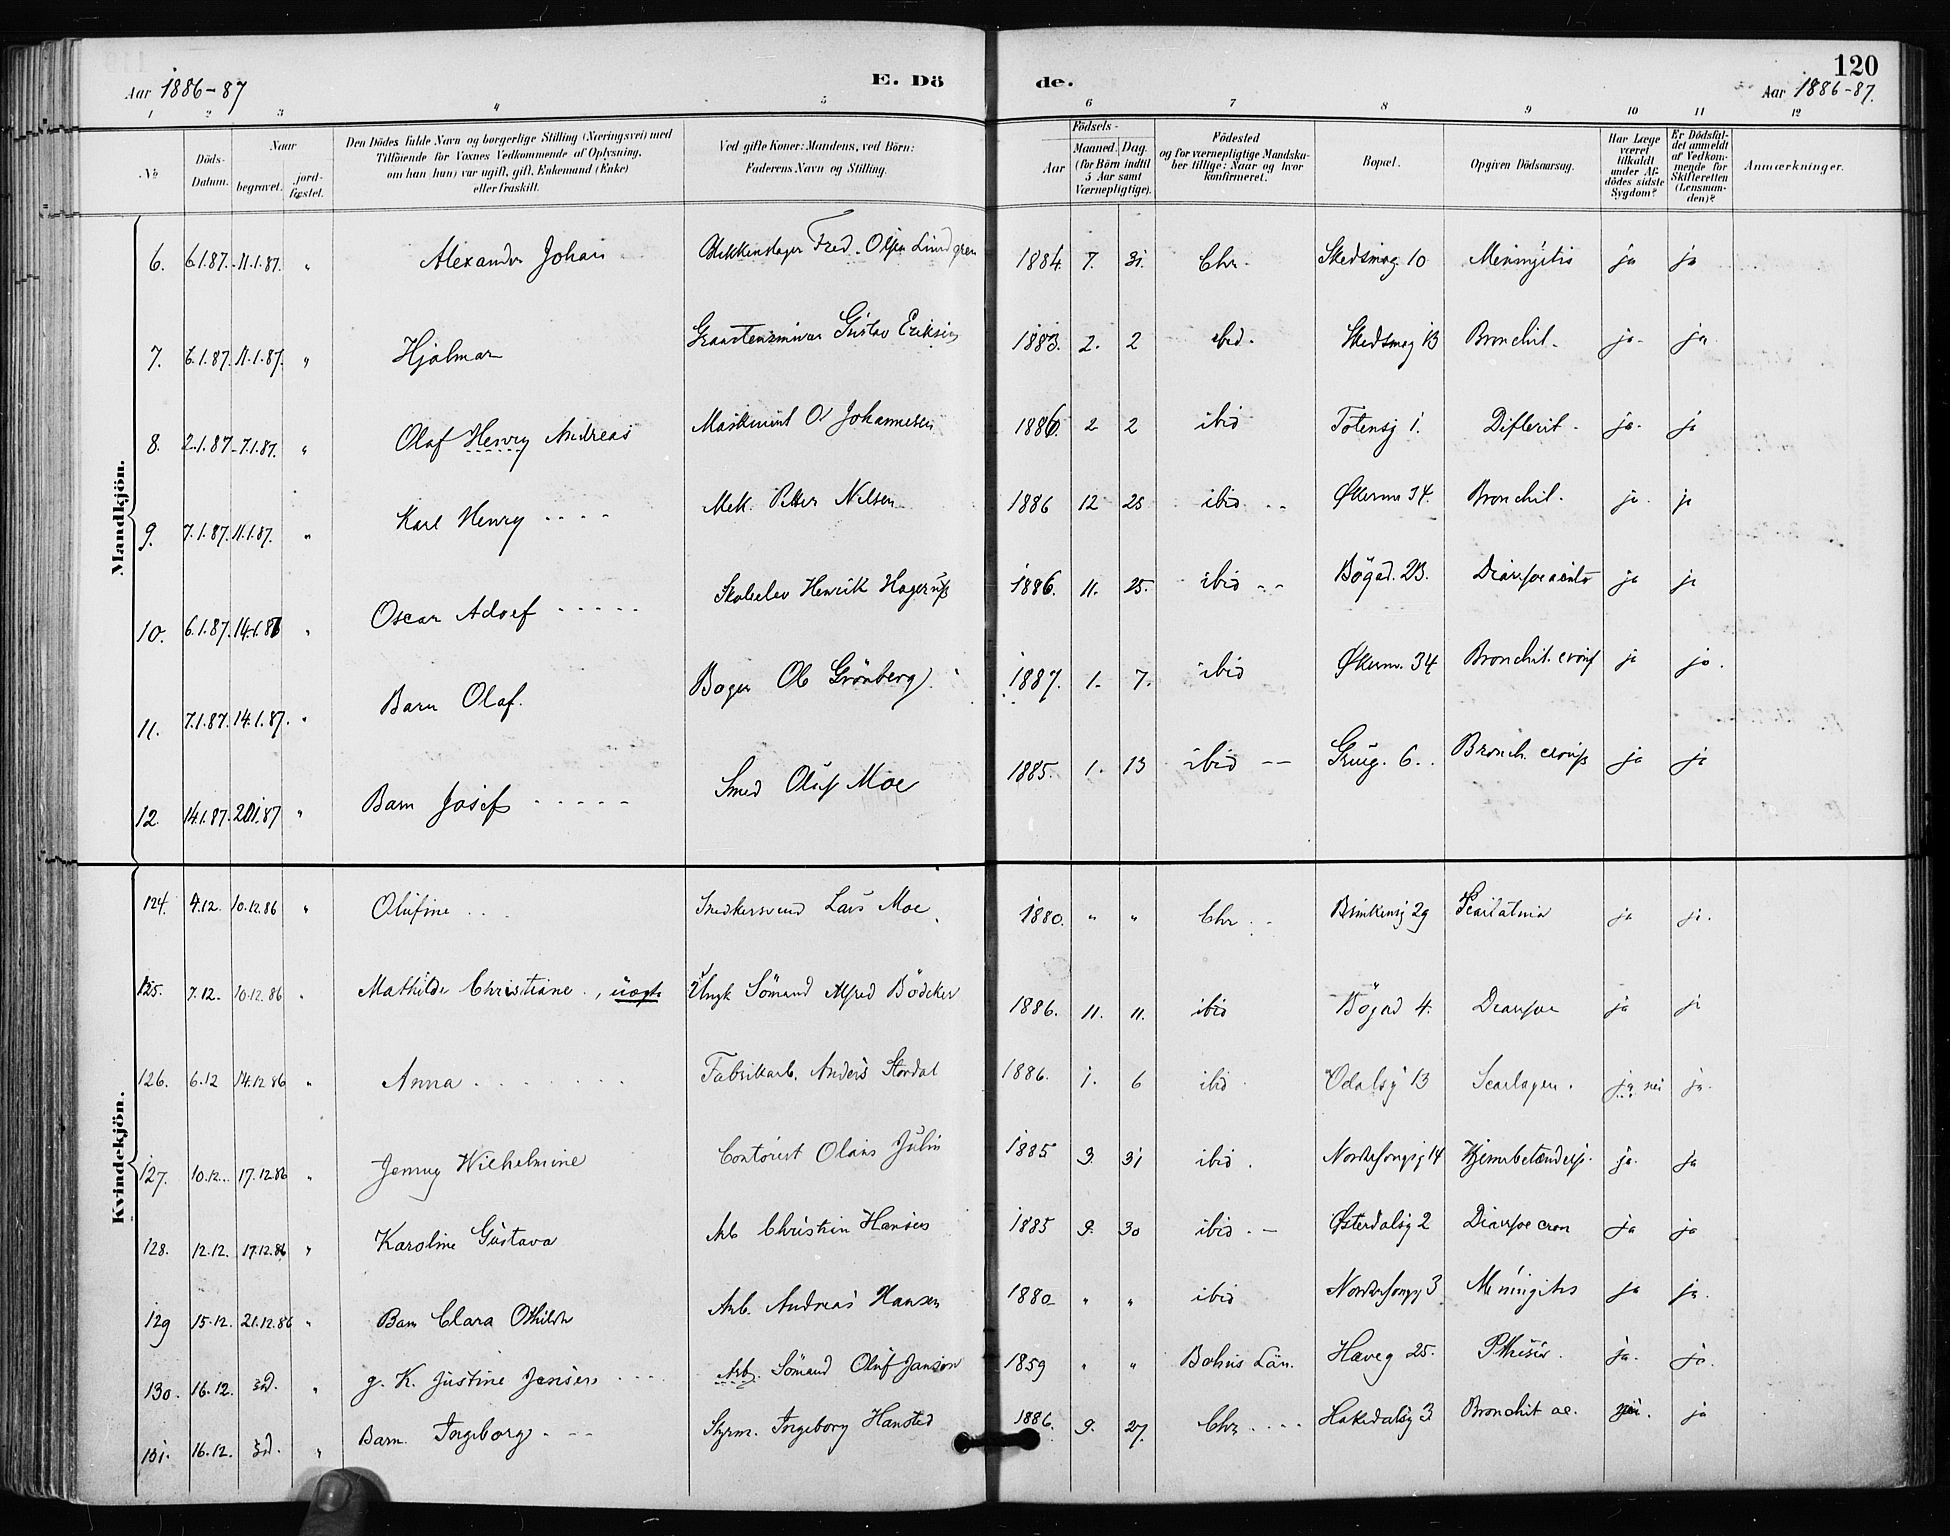 120
Aar 1886-87 E. Dö de. Aar 1886-87.
1 2 3 4 5 6 7 8 9 10 11 12
No
Döds-Datum.
Naar
begravet.
jordfæstet.
Den Dödes fulde Navn og borgerlige Stilling (Næringsvei) med
Tilföiende for Voxnes Vedkommende af Oplysning,
om han (hun) var ugift, gift, Enkemand (Enke)
eller fraskilt.
Ved gifte Koner: Mandens, ved Börn:
Faderens Navn og Stilling.
Födsels-
Aar
Maaned. Dag.
(for Börn indtil
5 Aar samt
Værnepligtige).
Födested
og for værnepligtige Mandska-
ber tillige: Naar og hvor
konfirmeret.
Bopæl.
Opgiven Dödsaarsag.
Har Læge
været
tilkaldt
under Af-
dödes sidste
Sygdom?
Er Dödsfal-
det anmeldt
af Vedkom-
mende for
Skifteretten
(Lensman-
den)?
Anmærkninger.
Mandkjön.
6. 6.1.87. 11.1.87. " Alexander Johan Blikkenslager Fred. Olsen Lindgren 1884. 7. 31. Chr. Skedsmog. 10 Meningitis ja ja
7. 6.1.87. 11.1.87. " Hjalmar Gustav Eriksen 1883. 2. 2 ibid. Skedsmog 13 Bronchit. ja ja
8. 2.1.87 7.1.87. " Olaf Henry Andreas Maskinist O Johannesen 1886. 2 2 ibid Totensg 1. Difterit ja ja
9. 7.1.87. 11.1.87. " Karl Henry Mek. Petter Nilsen 1886 12 25 ibid Økernv 34. Bronchit. ja ja
10. 6.1.87. 14.1.87 " Oscar Adolf Henrik Hagerup 1886. 11. 25. ibid Bögad. 23. ja ja
11. 7.1.87. 14.1.87. " Barn Olaf. Bager Ole Grönberg 1887. 1. 7. ibid Økernv. 34 Bronchit. croup ja ja.
12. 14.1.87. 20.1.87 " Barn Josef Smed Oluf Moe 1885. 1. 13 ibid 6. Bronch. croup ja ja
Kvindekjön.
124. 4.12. 10.12.86 " Olufine Snedkersvend Lars Moe 1880. " " Chr. Brinkensg 29 Scarlatina ja ja.
125. 7.12. 10.12.86 " Mathilde Christiane, uægte Ungk Sömand Alfred Bödcker 1886. 11. 11. ibid Bögad 4. Diarrhoe ja ja
126. 6.12 14.12.86 " Anna Fabrikarb. Anders Stordal 1886. 1. 6 ibid Odalsg 13 ja nei ja.
127. 10.12. 17.12.86 " Jenny Wilhelmine Contorist Olaus Julin 1885 3. 31 ibid. 14 Hjernebetændels. ja. ja
128. 12.12. 17.12.86 " Karoline Gustava Arb Christian Hansen 1885 9. 30 ibid. Østerdalsg 2 Diarrhoe cron ja ja
129 15.12. 21.12.86 " Barn Clara Othilde Arb. Andreas Hansen 1880 " " ibid 3 Meningitis ja ja.
130. 16.12. sd. " g. K. Justine Jansen Arb. Sömand Oluf Janson 1859 " " Bohus Län. Haveg 25. Phtisis. ja. ja.
131. 16.12. sd. " Barn Ingeborg Styrm. Ingeborg Hansted 1886. 9. 27. Chr. Hakedalsg 3 Bronchit ac. nei. ja